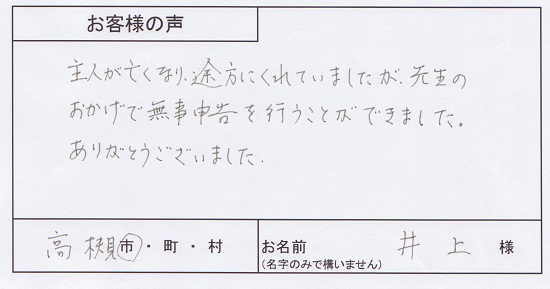 お客様の声
主人が亡くなり、途方にくれていましたが、先生の
おかげで無事申告を行うことができました。
ありがとうございました。
高槻市・町・村
お名前 井上 様
(名字のみで構いません)